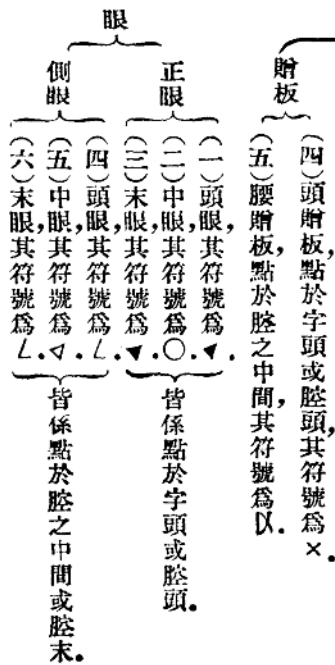 贈板
(四)頭贈板,點於字頭或腔頭,其符號爲×.
(五)腰贈板,點於腔之中間,其符號爲㕥.
眼
正眼
(一)頭眼,其符號爲▼.
(二)中眼,其符號爲○.
(三)末眼,其符號爲▼.
皆係點於字頭或腔頭.
側眼
(四)頭眼,其符號爲ㄥ.
(五)中眼,其符號爲◁.
(六)末眼,其符號爲ㄥ.
皆係點於腔之中間或腔末.